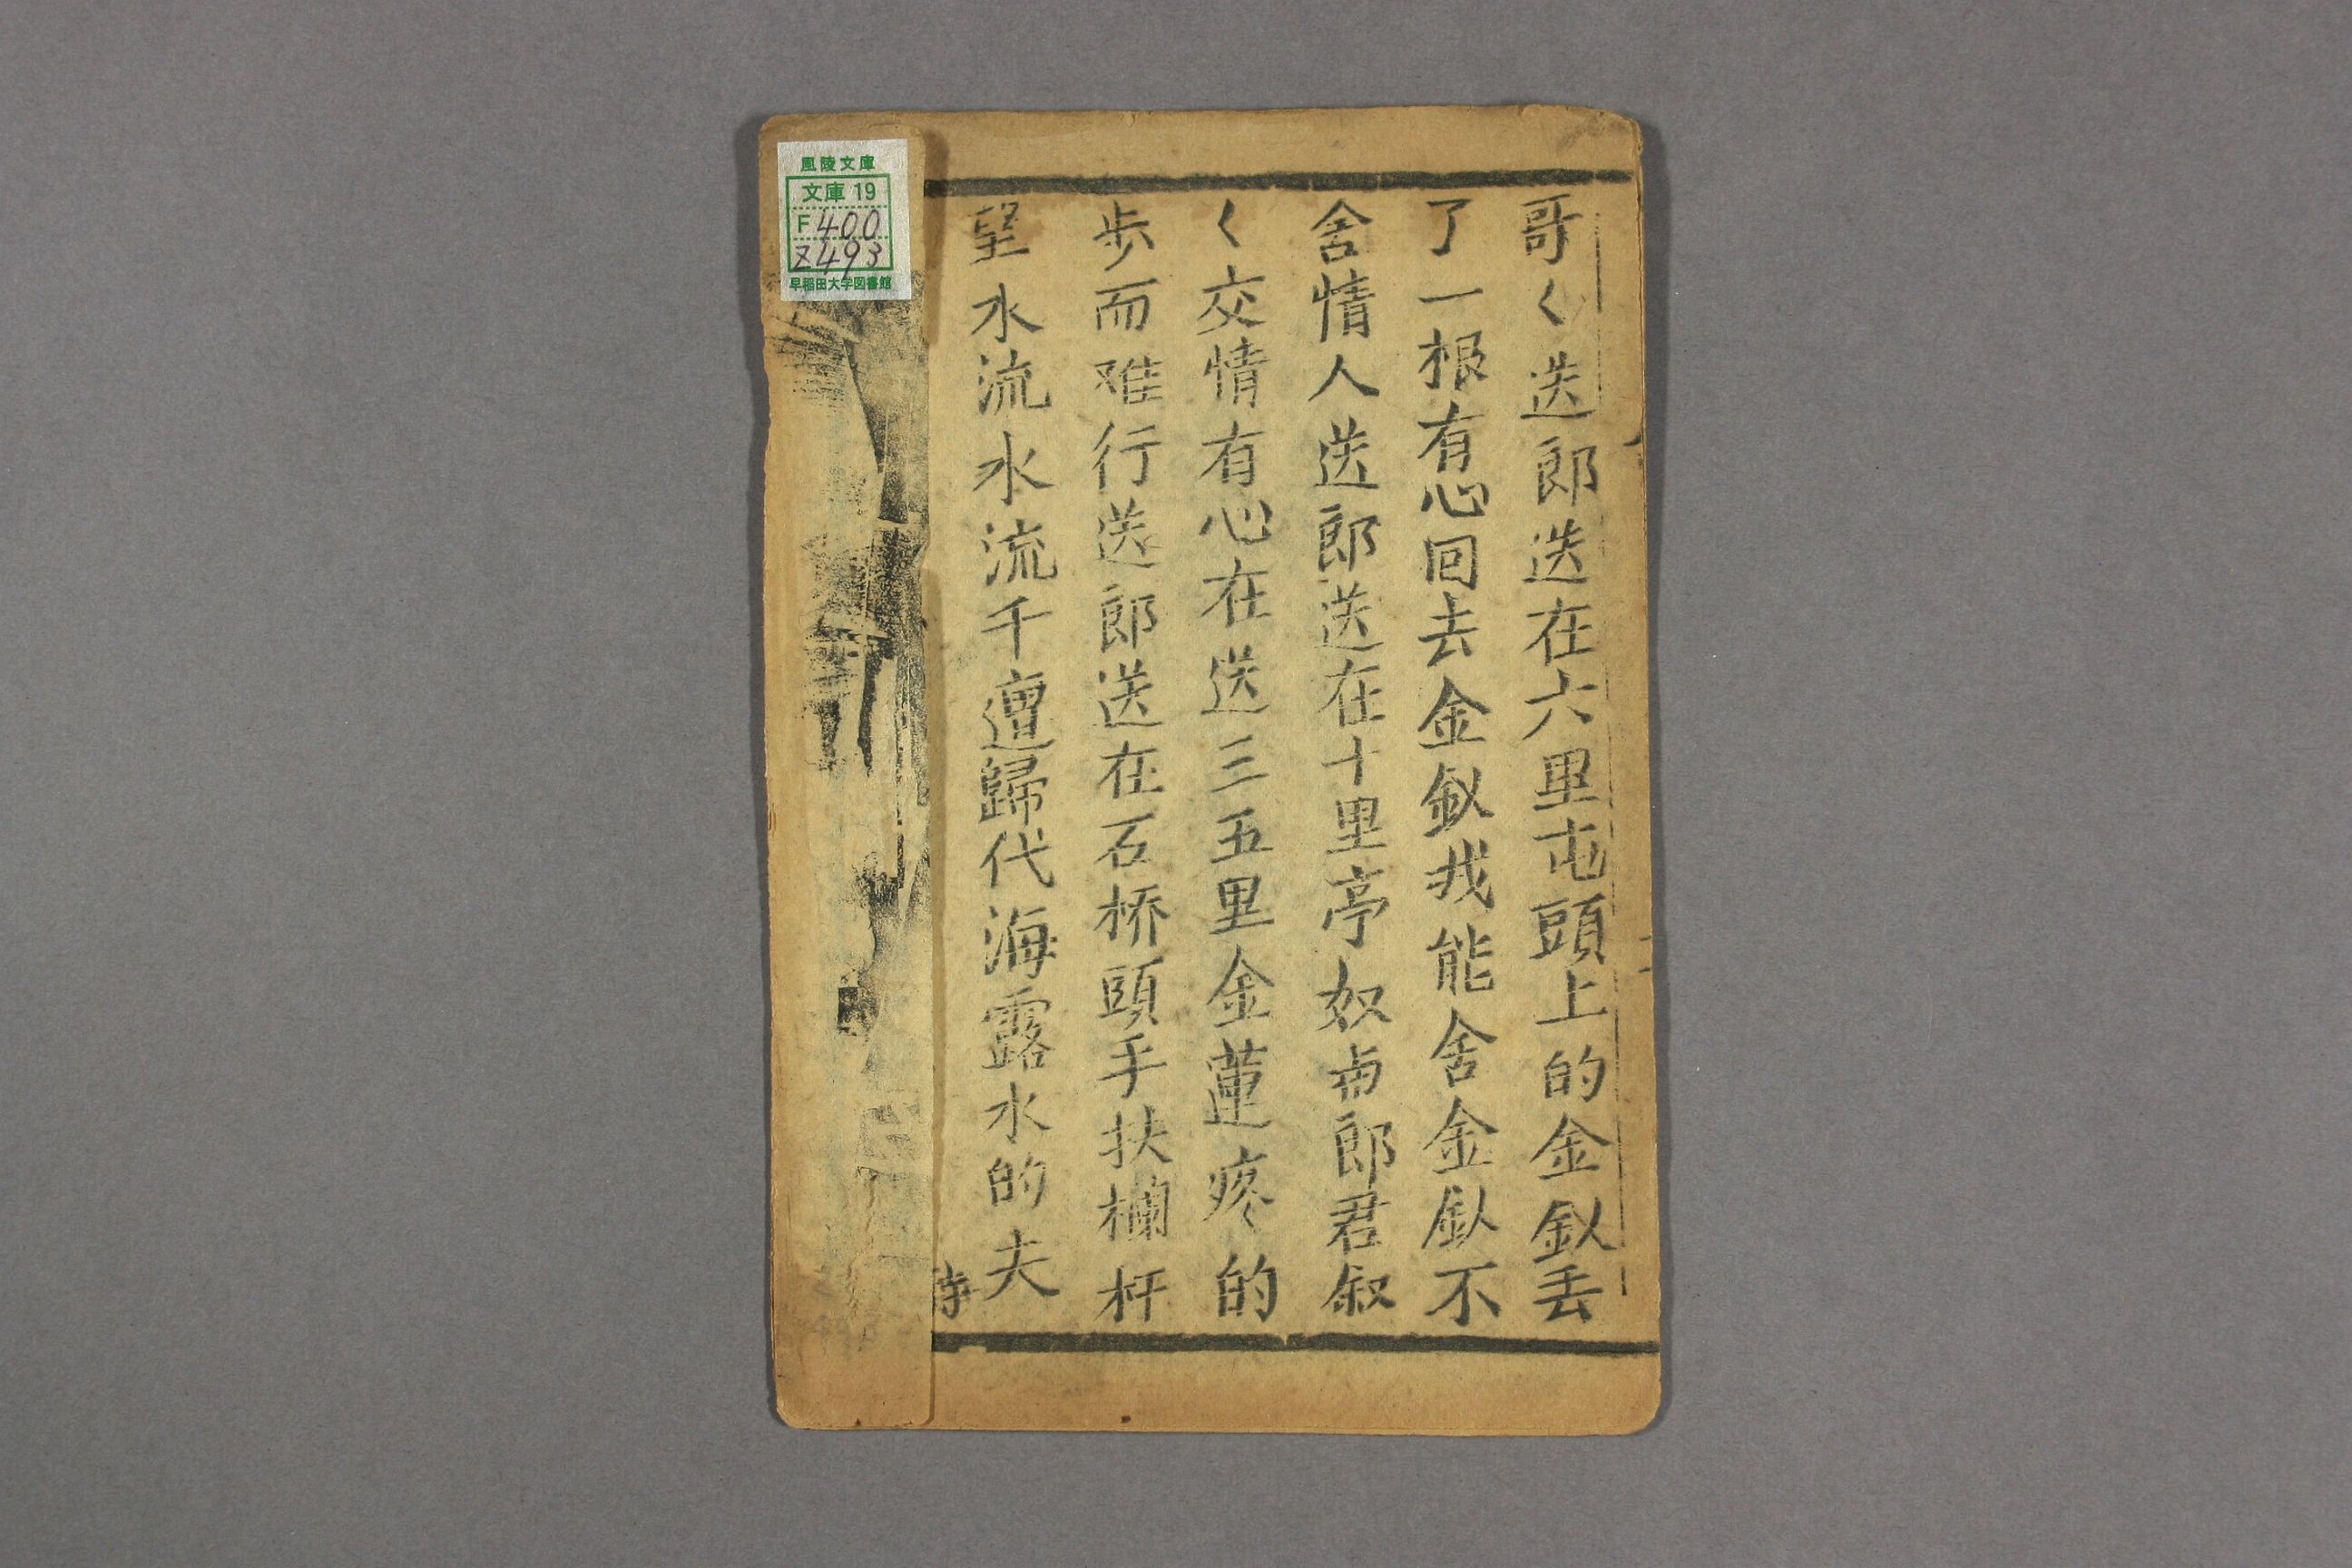 哥〱送郎送在六里屯頭上的金釵丢
了一根有心回去金釵找能舍金釵不
舍情人送郎送在十里亭奴與郎君叙
〱交情有心在送三五里金蓮疼的
步而难行送郎送在石桥頭手扶欄杆
望水流水流千遭歸代海露水的夫
風陵文庫
文庫 19
F 400
Z 493
早稲田大学図書館